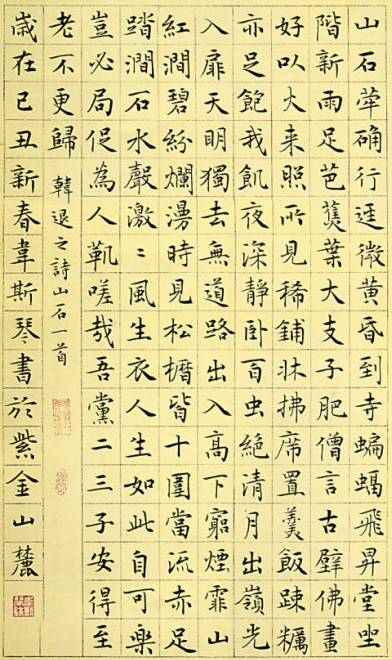 山石犖确行逕微黃昏到寺蝙蝠飛昇堂坐
階新雨足芭蕉葉大支子肥僧言古壁佛畫
好以火来照所見稀鋪牀拂席置羹飯踈糲
亦足飽我飢夜深靜卧百虫絕清月出嶺光
入扉天明獨去無道路出入高下窮煙霏山
紅澗碧紛爛漫時見松櫪皆十圍當流赤足
踏澗石水聲激〻風生衣人生如此自可樂
豈必局促為人鞿嗟哉吾黨二三子安得至
老不更歸 韓退之詩山石一首
歲在己丑新春韋斯琴書於紫金山麓